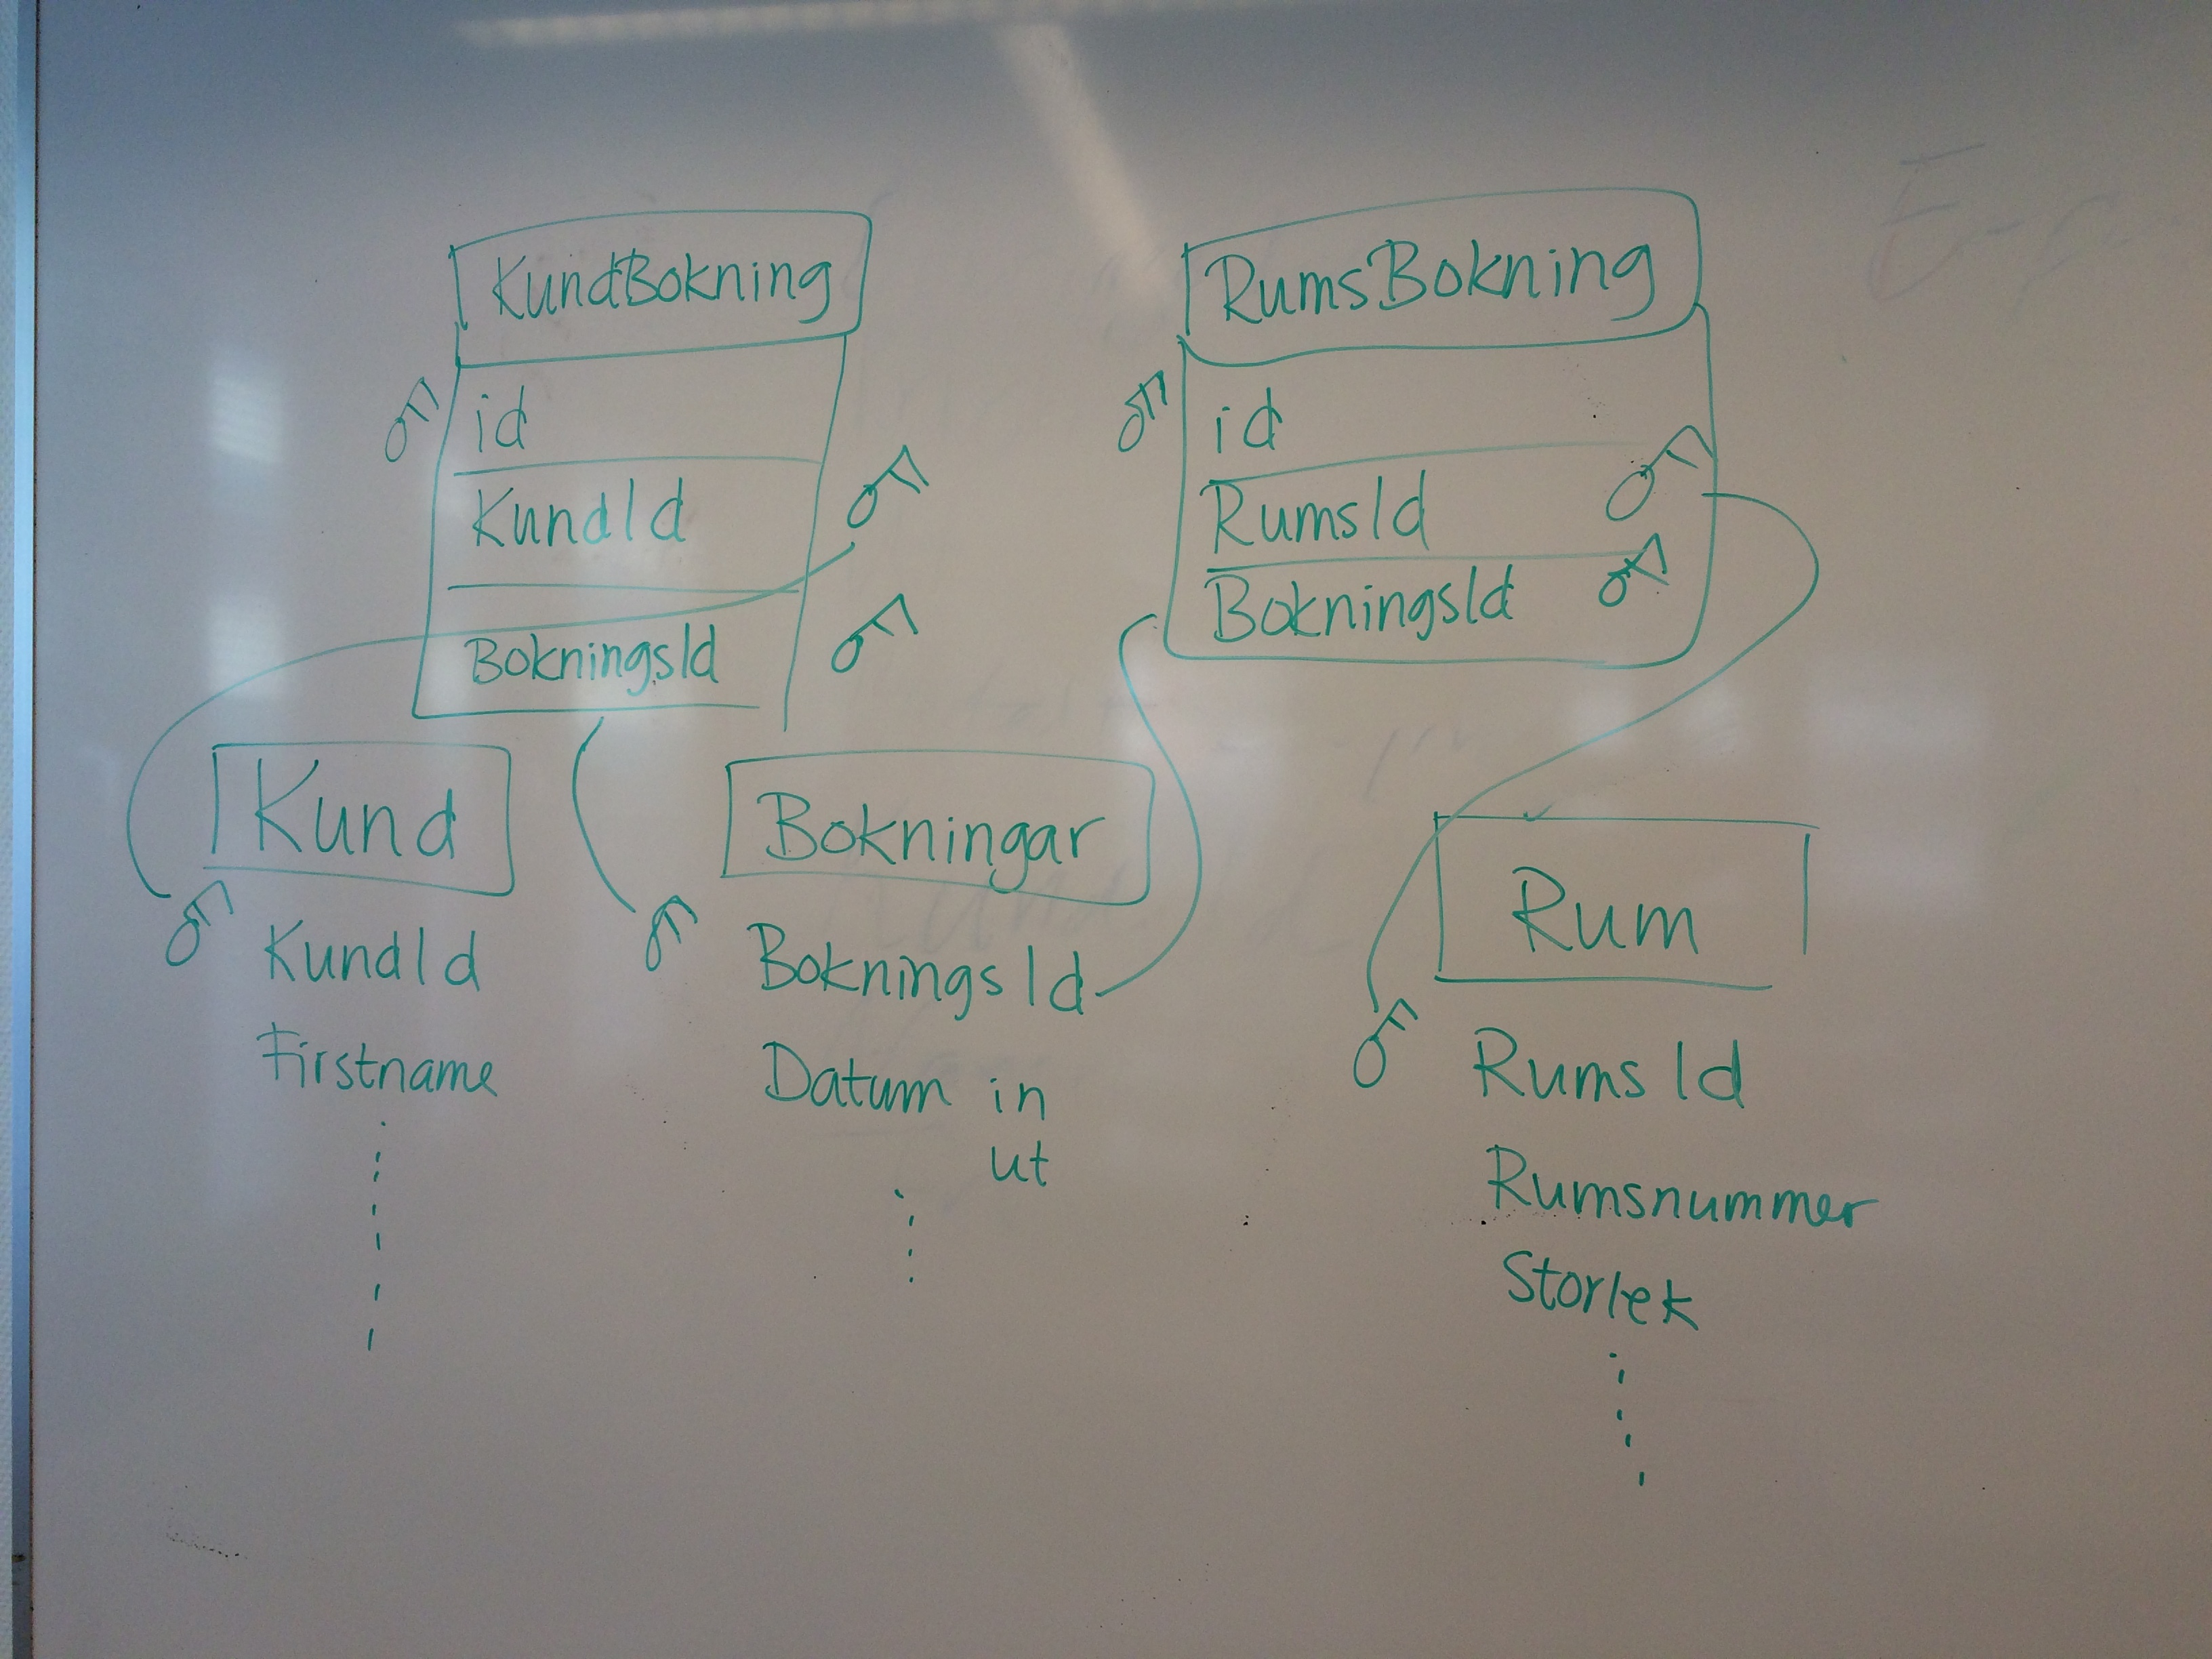 KundBokning
id
KundId
BokningsId
RumsBokning
id
RumsId
BokningsId
Kund
KundId
Firstname
Bokningar
BokningsId
Datum in
ut
Rum
RumsId
Rumsnummer
Storlek